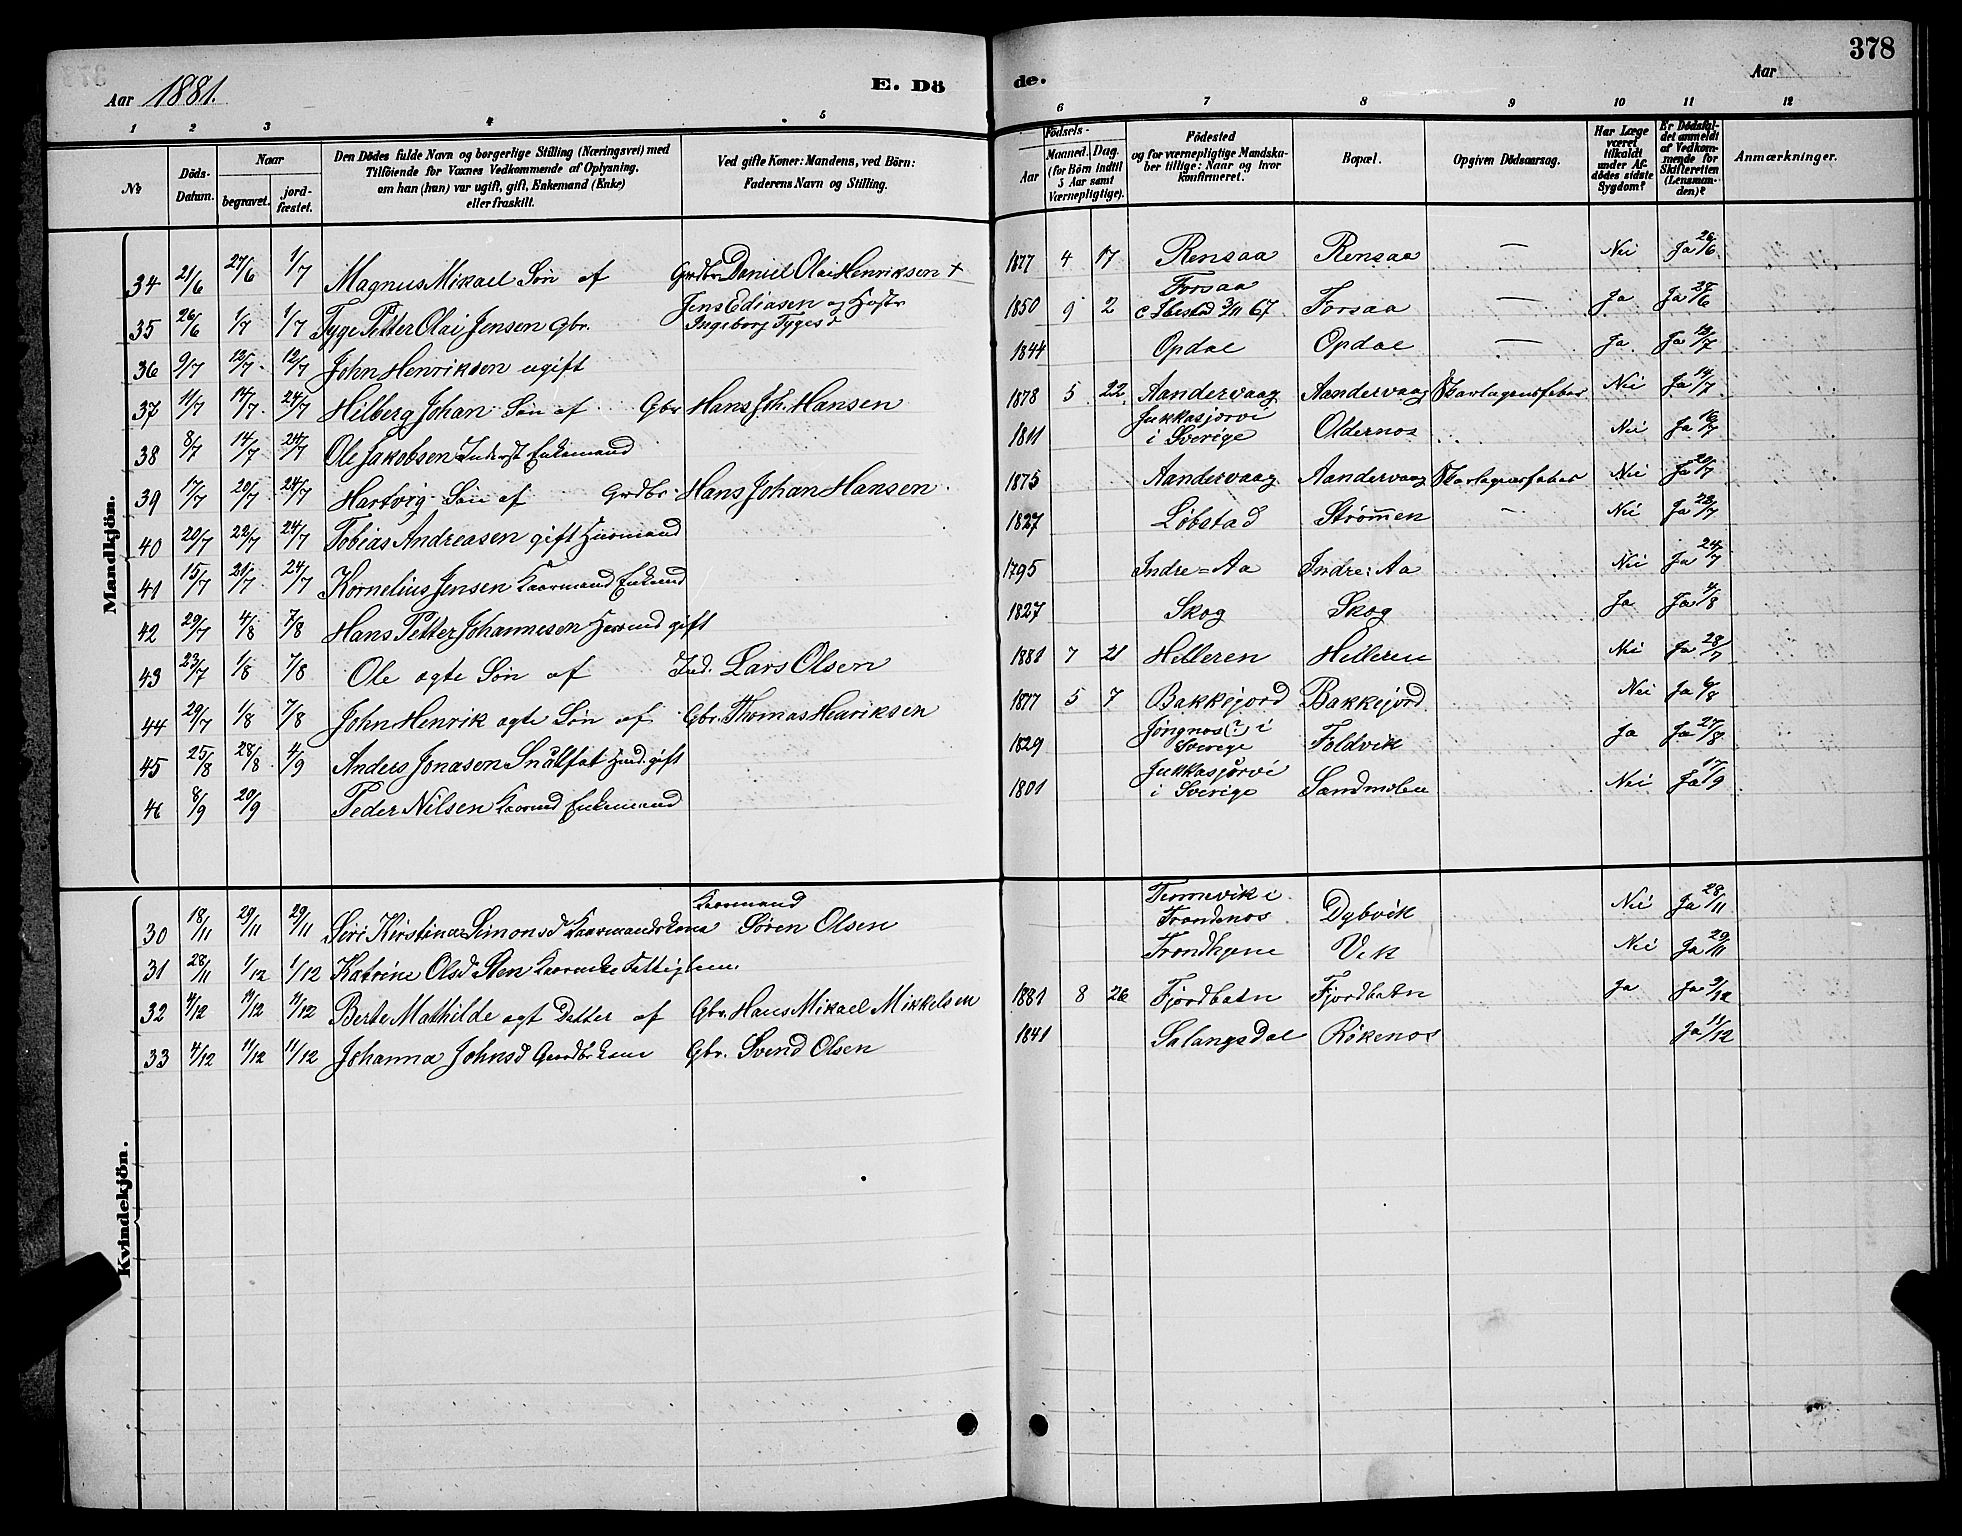 378
Aar 1881.
E. Dö
de.
Aar
1 2 3 4 5
6 7 8 9 10 11 12
No
Döds-Datum.
Naar
begravet.
jord-fæstet.
Den Dödes fulde Navn og borgerlige Stilling (Næringsvei) med
Tilföiende for Voxnes Vedkommende af Oplysning,
om han (hun) var ugift, gift, Enkemand (Enke)
eller fraskilt.
Ved gifte Koner: Mandens, ved Börn:
Faderens Navn og Stilling.
Födsels-
Aar
Maaned. Dag.
(for Börn indtil
5 Aar samt
Værnepligtige).
Födested
og for værnepligtige Mandska-
ber tillige: Naar og hvor
konfirmeret.
Bopæl.
Opgiven Dödsaarsag.
Har Læge
været
tilkaldt
under Af-
dödes sidste
Sygdom?
Er Dödsfal-
det anmeldt
af Vedkom-
mende for
Skifteretten
(Lensman-
den)?
Anmærkninger.
Mandkjön.
34 21/6 27/6 1/7 Magnus Mikael Søn af Grdbr. Daniel Olai Henriksen + 1877 4 17 Rensaa Rensaa — Nei Ja 26/6
35 26/6 1/7 1/7 Tyge Petter Olai Jensen Gbr. Jens Ediasen og Hustr Ingeborg Tygesd 1850 9 2 Forsaa c Ibestad 3/11 67 Forsaa — Ja Ja 28/6
36 9/7 12/7 12/7 John Henriksen ugift 1844 Opdal Opdal — Ja Ja 12/7
37 11/7 14/7 24/7 Hilberg Johan Søn af Gbr Hans Joh. Hansen 1878 5 22 Aandervaag Aandervaag Skarlagensfeber Nei Ja 14/7
38 8/7 14/7 24/7 Ole Jakobsen Inderst Enkemand 1811 Jukkasjørvi i Sverige Oldernos Nei Ja 16/7
39 17/7 20/7 24/7 Hartvig Søn af Grdbr. Hans Johan Hansen. 1875 Aandervaag Aandervaag Skarlagensfeber Nei Ja 20/7
40 20/7 22/7 24/7 Tobias Andreasen gift Huusmand 1827 Løbstad Strømmen — Nei Ja 22/7
41 15/7 21/7 24/7 Kornelius Jensen Kaarmand Enkemd 1795 Indre=Aa Indre=Aa Nei Ja 24/7
42 29/7 4/8 7/8 Hans Petter Johannesen Huusmd gift 1827 Skog Skog Ja Ja 4/8
43 23/7 1/8 7/8 Ole ægte Søn af Ind. Lars Olsen 1881 7 21 Helleren Helleren Nei Ja 28/7
44 29/7 1/8 7/8 John Henrik ægte Søn af Gbr. Thomas Henriksen 1877 5 7 Bakkejord Bakkejord Nei Ja 6/8
45 25/8 28/8 4/9 Anders Jonasen Snålfot Husmd. gift 1829 Jongnos (?) i Sverige Foldvik Ja Ja 27/8
46 8/9 20/9 Peder Nilsen Kaarmd Enkemand 1801 Jukkasjørvi i Sverige Sandmolen Nei Ja 17/9
Kvindekjön.
30 18/11 29/11 29/11 Siri Kirstina Simonsd Kaarmandskone Kaarmand Søren Olsen Tennevik i Trondenos Dybvik Nei Ja 28/11
31 28/11 1/12 1/12 Katrine Olsd Sten Kaarenke Fattiglem. Trondhjem Vik Nei Ja 29/11
32 4/12 11/12 11/12 Berte Mathilde ægt Datter af Gbr. Hans Mikael Mikkelsen 1881 8 26 Fjordbotn Fjordbotn Ja Ja 9/12
33 4/12 11/12 11/12 Johanna Johnsd Gaardbr.kone Gbr. Svend Olsen 1841 Salangsdal Røkenes Ja 11/12